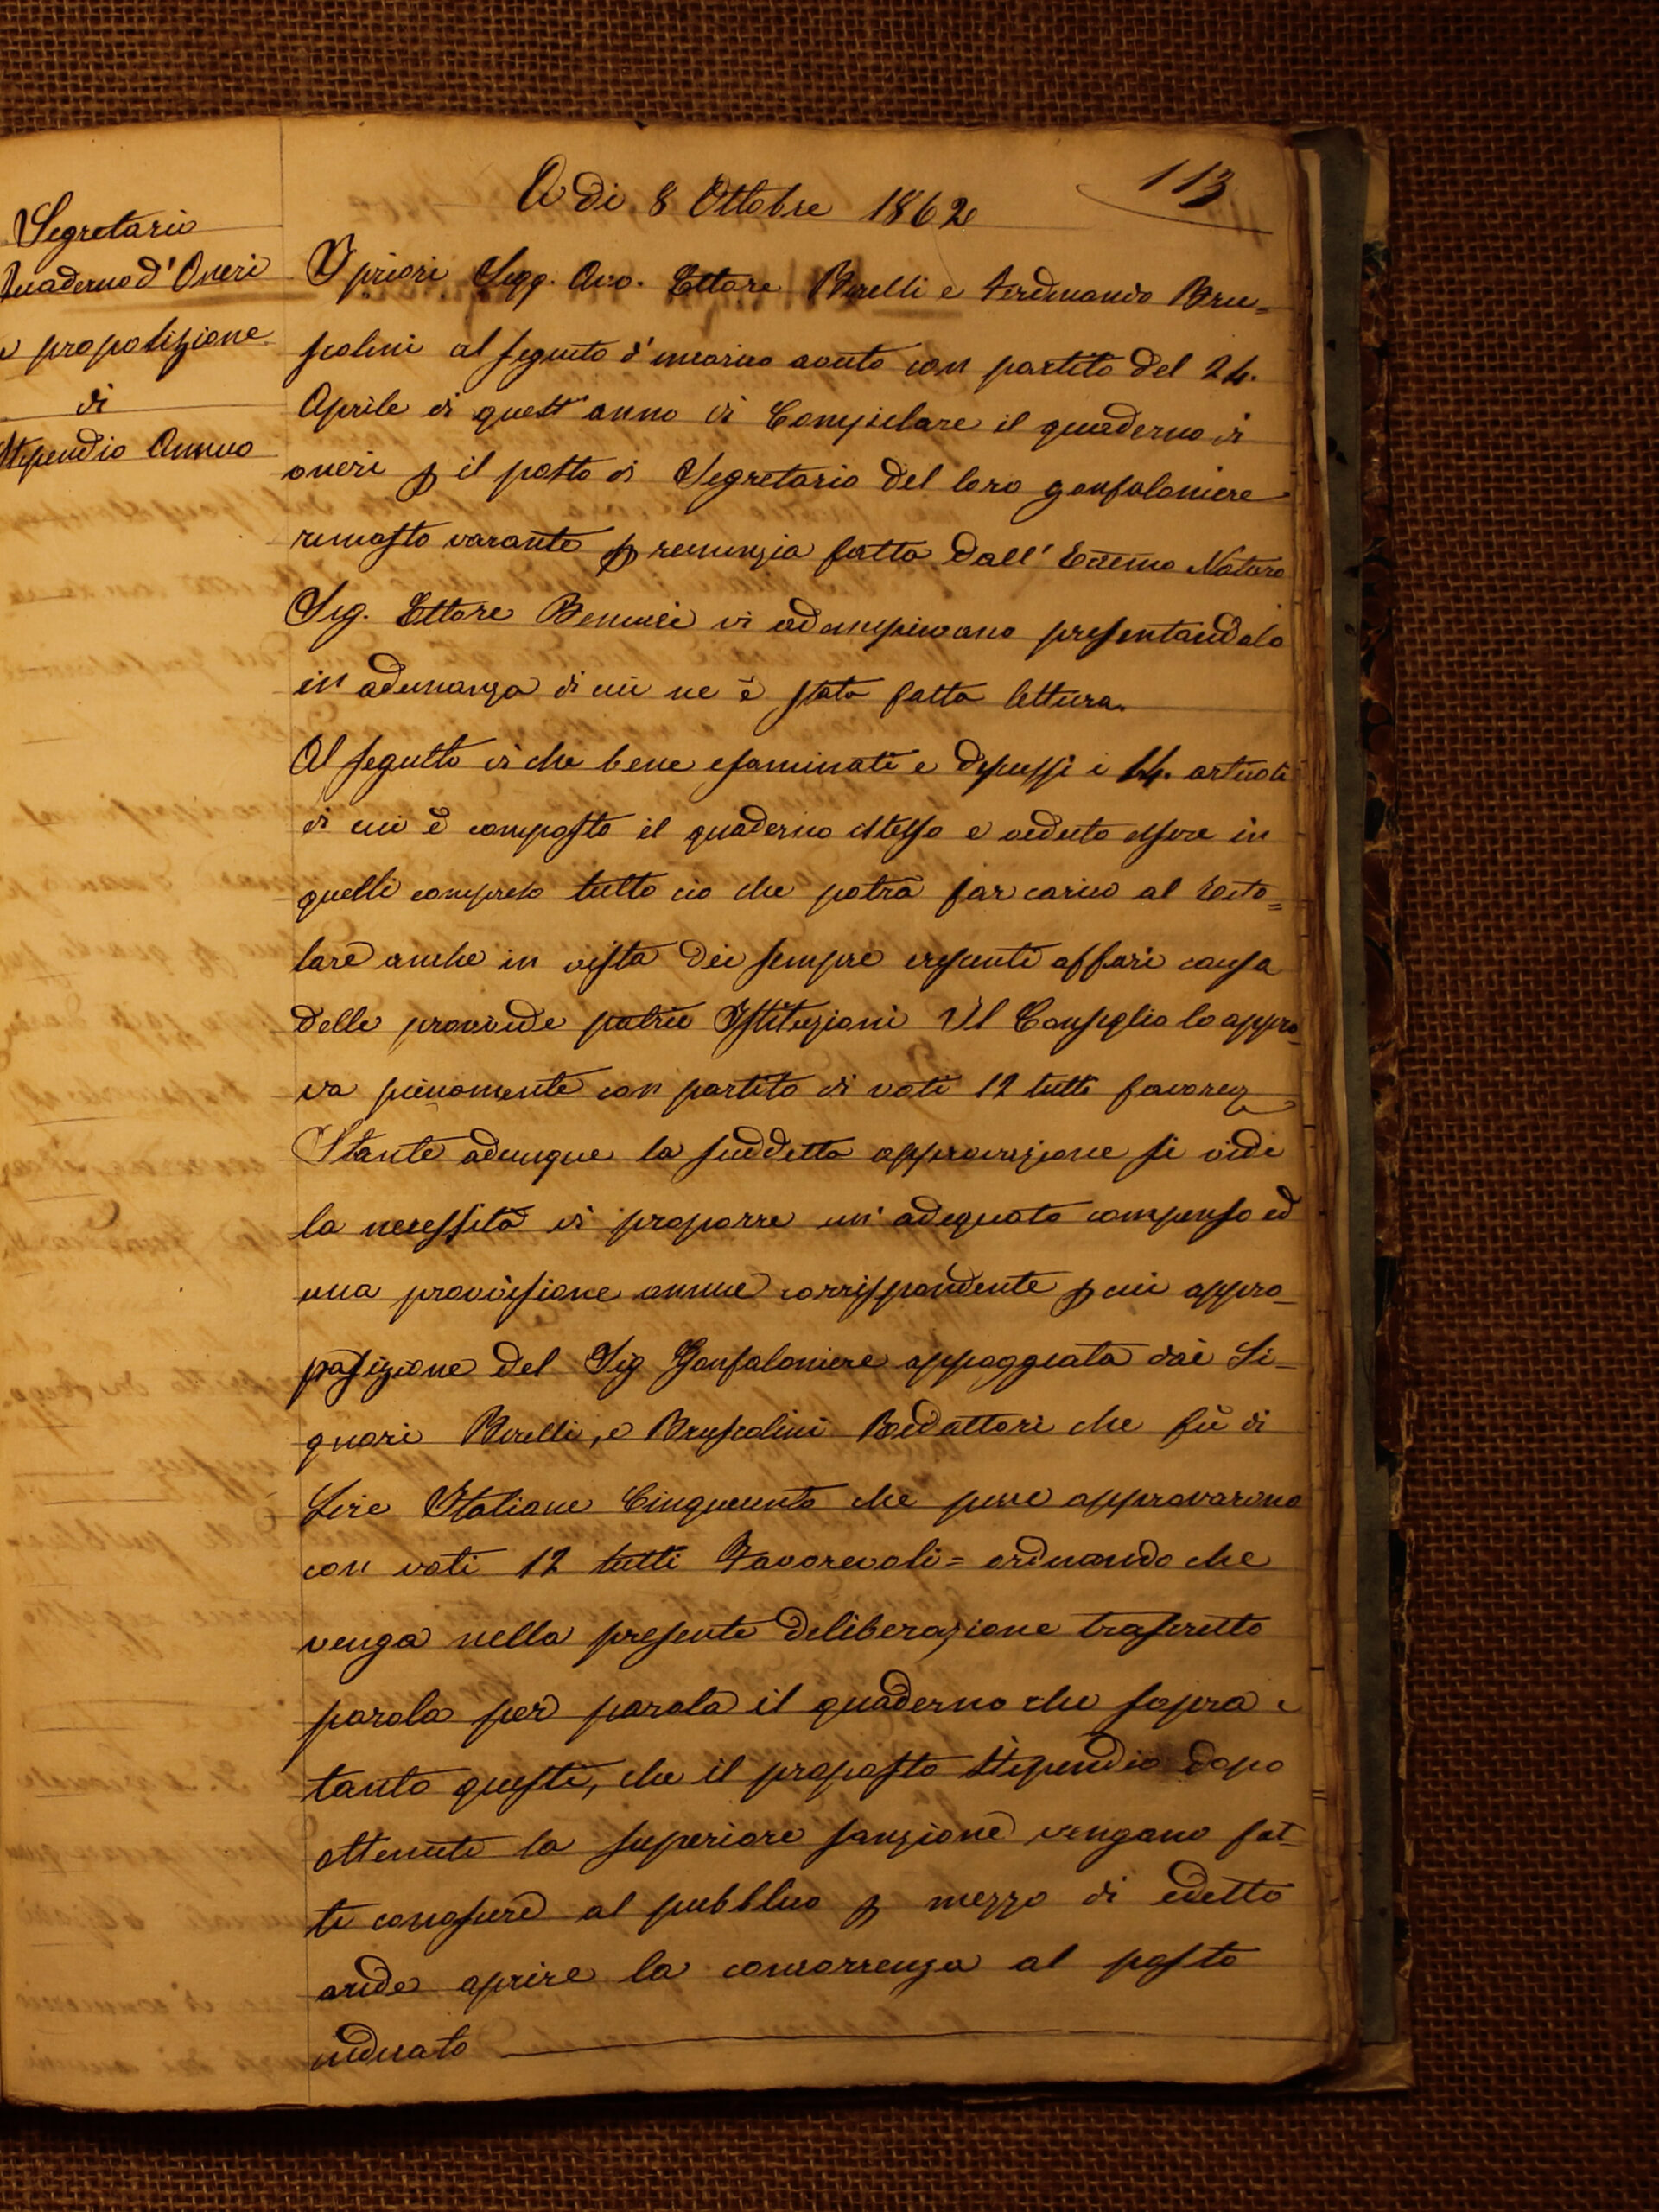 A di 8 Ottobre 1862
113
Segretario
Quaderno d'Oneri
e proposizione
di
Stipendio Annuo
I priori Sigg. Avv. Ettore Borelli e Ferdinando Bru=
scolini al seguito d'incarico avuto con partito del 24.
Aprile di quest'anno di Compilare il quaderno di
oneri p il posto di Segretario del loro gonfaloniere
rimasto vacante p renunzia fatta dall' Notaro
Sig. Ettore vi adempivano presentandolo
in adunanza di cui ne è stata fatta lettura.
Al seguito di che bene esaminati e discussi i 14. articoli
di cui è composto il quaderno istesso e veduto essere in
quelli compreso tutto ciò che potrà far carico al
lare anche in vista dei sempre crescenti affari causa
delle provvide patrie Istituzioni Il Consiglio lo appro
va pienamente con partito di voti 12 tutti
Stante adunque la suddetta approvazione si vide
la necessità di proporre un' adequato compenso ed
una provvisione annue corrispondente p cui appro_
posizione del Sig Gonfaloniere appoggiata dai Si_
gnori Borelli, e Bruscolini Redattori che fù di
Lire Italiane Cinquecento che pure approvarono
con voti 12 tutti Favorevoli = ordinando che
venga nella presente deliberazione trascritto
parola per parola il quaderno che sopra e
tanto questi, che il proposto Stipendio dopo
ottenute la superiore sanzione vengano fat_
ti conoscere al pubblico p mezzo di editto
onde aprire la concorrenza al posto
indicato